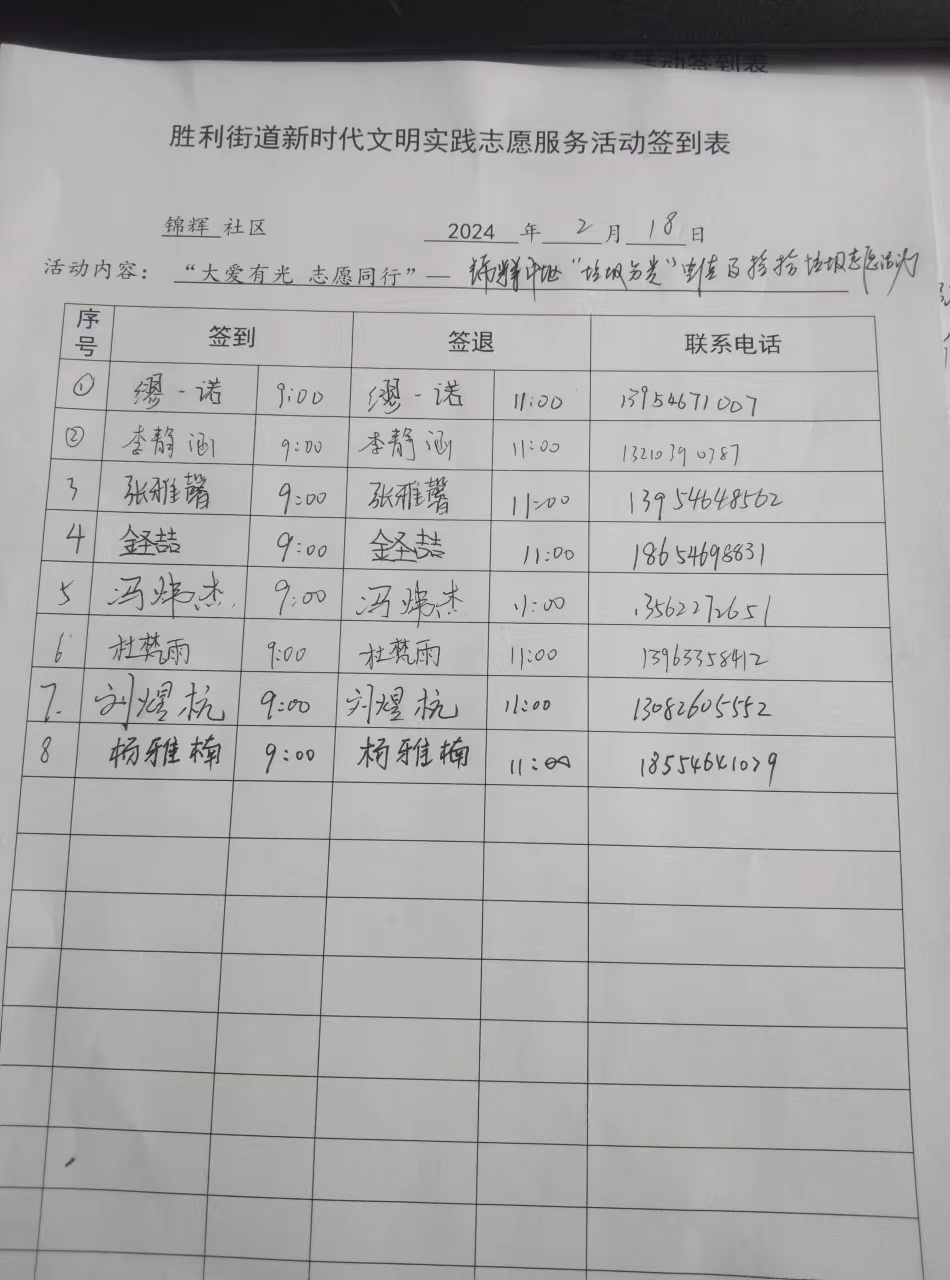 签到表
胜利街道新时代文明实践志愿服务活动签到表
锦辉 社区 2024 年 2 月 18 日
活动内容: “大爱有光 志愿同行”— “垃圾分类” 及捡拾垃圾志愿活动
序号 签到 签退 联系电话
① 缪一诺 9:00 缪一诺 11:00 13954671007
② 李静涵 9:00 李静涵 11:00 13210390387
3 张雅馨 9:00 张雅馨 11:00 13954648562
4 金圣喆 9:00 金圣喆 11:00 18654698831
5 冯炜杰 9:00 冯炜杰 11:00 13562272651
6 杜梵雨 9:00 杜梵雨 11:00 13963358412
7. 刘煜杭 9:00 刘煜杭 11:00 13082605552
8 杨雅楠 9:00 杨雅楠 11:00 18554641079